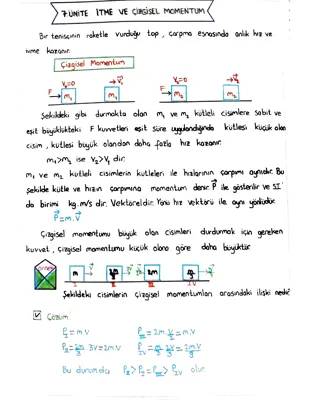 7.ÜNİTE İTME VE ÇİZGİSEL MOMENTUM
Bir tenisçinin raketle vurduğu top, çarpma esnasında anlık hız ve
ivme kazanır.
Çizgisel Momentum
V₀=0 V⃗₁ V₀=0 V⃗₂
F m₁ m₁ F m₂ m₂
Şekildeki gibi durmakta olan m₁ ve m₂ kütleli cisimlere sabit ve
eşit büyüklükteki F kuvvetleri eşit süre uygulandığında kütlesi küçük olan
cisim, kütlesi büyük olandan daha fazla hız kazanır.
m₁>m₂ ise V₂>V₁ dir.
m₁ ve m₂ kütleli cisimlerin kütleleri ile hızlarının çarpımı aynıdır. Bu
şekilde kütle ve hızın çarpımına momentum denir. P⃗ ile gösterilir ve SI'
da birimi kg.m/s dir. Vektöreldir. Yönü hız vektörü ile aynı yönlüdür.
P⃗=m.V⃗
Çizgisel momentumu büyük olan cisimleri durdurmak için gereken
kuvvet, çizgisel momentumu küçük olana göre daha büyüktür.
m 2m/3 2m m/3
I II III IV
Şekildeki cisimlerin çizgisel momentumları arasındaki ilişki nedir?
Çözüm
P_I = m.V P_III = 2m.V/2 = m.V
P_II = 2m/3 . 3V = 2m.V P_IV = m/3 . 2V/3 = 2m.V/9
Bu durumda P_II > P_I = P_III > P_IV olur.